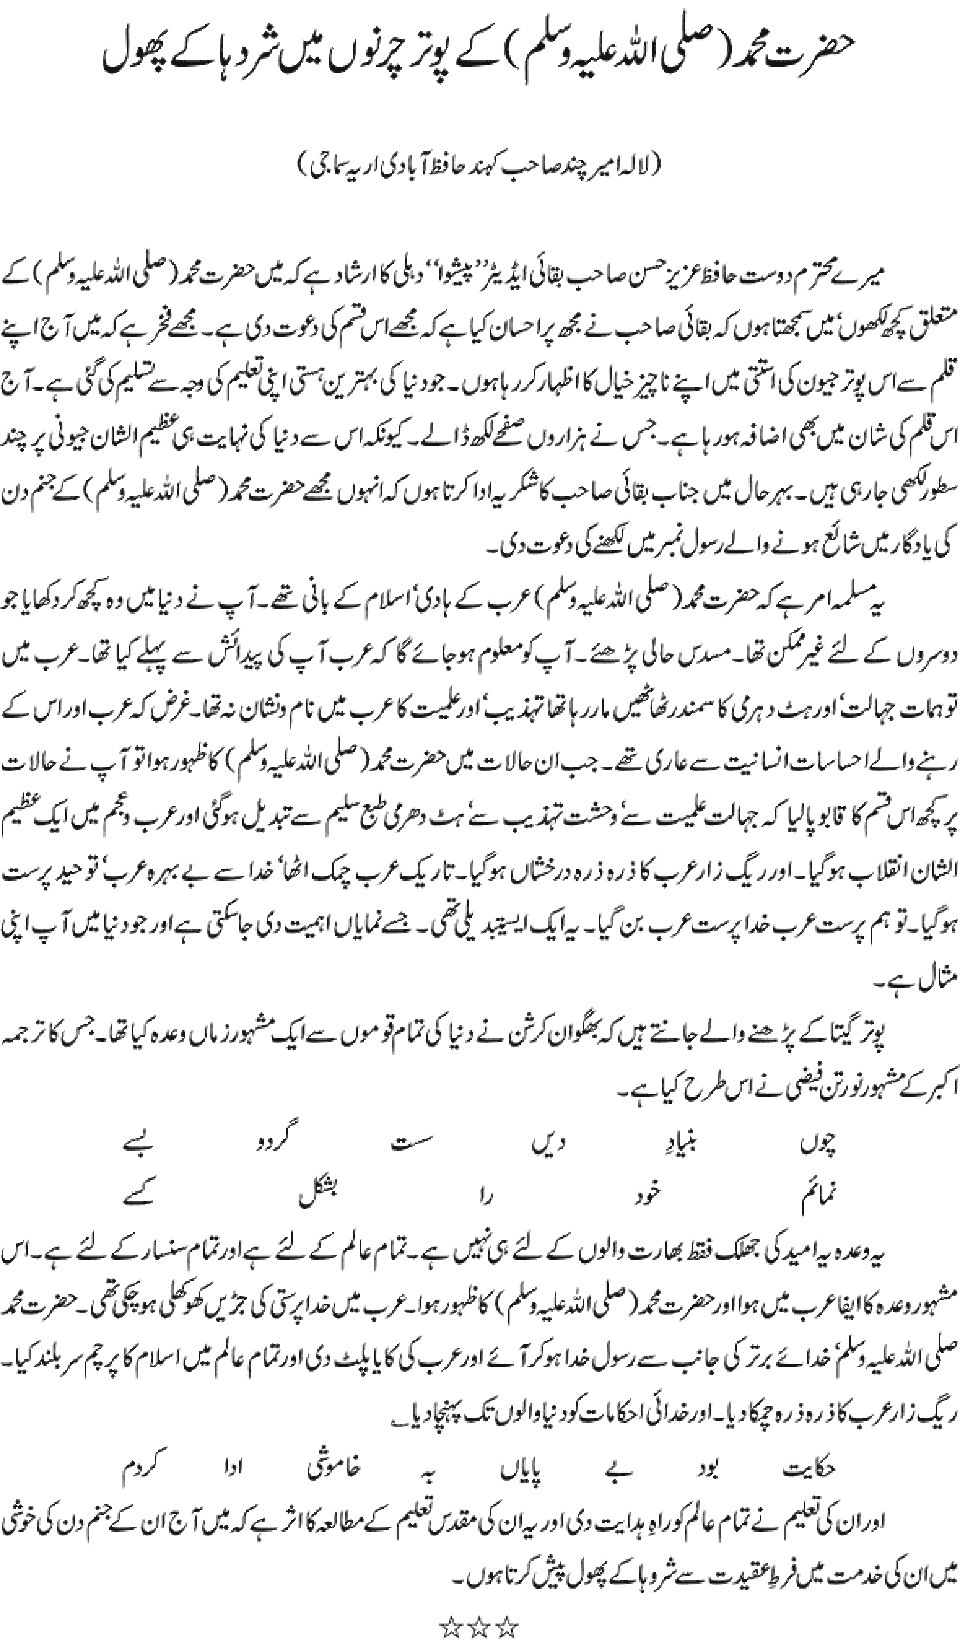 حضرت محمد (صلی اللہ علیہ وسلم) کے پوتر چرنوں میں شردہا کے پھول
(لالہ امیر چند صاحب کہند حافظ آبادی اریہ سماجی)
میرے محترم دوست حافظ عزیز حسن صاحب بقائی ایڈیٹر ”پیشوا“ دہلی کا ارشاد ہے کہ میں حضرت محمد (صلی اللہ علیہ وسلم) کے
متعلق کچھ لکھوں‘ میں سمجھتا ہوں کہ بقائی صاحب نے مجھ پر احسان کیا ہے کہ مجھے اس قسم کی دعوت دی ہے۔ مجھے فخر ہے کہ میں آج اپنے
قلم سے اس پوتر جیون کی استتی میں اپنے ناچیز خیال کا اظہار کر رہا ہوں۔ جو دنیا کی بہترین ہستی اپنی تعلیم کی وجہ سے تسلیم کی گئی ہے۔ آج
اس قلم کی شان میں بھی اضافہ ہو رہا ہے۔ جس نے ہزاروں صفحے لکھ ڈالے۔ کیونکہ اس سے دنیا کی نہایت ہی عظیم الشان جیونی پر چند
سطور لکھی جا رہی ہیں۔ بہر حال میں جناب بقائی صاحب کا شکریہ ادا کرتا ہوں کہ انہوں مجھے حضرت محمد (صلی اللہ علیہ وسلم) کے جنم دن
کی یادگار میں شائع ہونے والے رسول نمبر میں لکھنے کی دعوت دی۔
یہ مسلمہ امر ہے کہ حضرت محمد (صلی اللہ علیہ وسلم) عرب کے ہادی‘ اسلام کے بانی تھے۔ آپ نے دنیا میں وہ کچھ کر دکھایا جو
دوسروں کے لئے غیر ممکن تھا۔ مسدس حالی پڑھئے۔ آپ کو معلوم ہو جائے گا کہ عرب آپ کی پیدائش سے پہلے کیا تھا۔ عرب میں
توہمات جہالت‘ اور ہٹ دہری کا سمندر ٹھاٹھیں مار رہا تھا تہذیب‘ اور علمیت کا عرب میں نام و نشان نہ تھا۔ غرض کہ عرب اور اس کے
رہنے والے احساسات انسانیت سے عاری تھے۔ جب ان حالات میں حضرت محمد (صلی اللہ علیہ وسلم) کا ظہور ہوا تو آپ نے حالات
پر کچھ اس قسم کا قابو پا لیا کہ جہالت علمیت سے‘ وحشت تہذیب سے‘ ہٹ دھرمی طبع سلیم سے تبدیل ہوگئی اور عرب و عجم میں ایک عظیم
الشان انقلاب ہوگیا۔ اور ریگ زار عرب کا ذرہ ذرہ درخشاں ہوگیا۔ تاریک عرب چمک اٹھا‘ خدا سے بے بہرہ عرب‘ توحید پرست
ہوگیا۔ توہم پرست عرب خدا پرست عرب بن گیا۔ یہ ایک ایستبدیلی تھی۔ جسے نمایاں اہمیت دی جاسکتی ہے اور جو دنیا میں آپ اپنی
مثال ہے۔
پوتر گیتا کے پڑھنے والے جانتے ہیں کہ بھگوان کرشن نے دنیا کی تمام قوموں سے ایک مشہور زماں وعدہ کیا تھا۔ جس کا ترجمہ
اکبر کے مشہور نورتن فیضی نے اس طرح کیا ہے۔
چوں بنیادِ دیں ست گردو بسے
نمائم خود را بشکل کسے
یہ وعدہ یہ امید کی جھلک فقط بھارت والوں کے لئے ہی نہیں ہے۔ تمام عالم کے لئے ہے اور تمام سنسار کے لئے ہے۔ اس
مشہور وعدہ کا ایفا عرب میں ہوا اور حضرت محمد (صلی اللہ علیہ وسلم) کا ظہور ہوا۔ عرب میں خدا پرستی کی جڑیں کھوکھلی ہو چکی تھی۔ حضرت محمد
صلی اللہ علیہ وسلم‘ خدائے برتر کی جانب سے رسول خدا ہو کر آئے اور عرب کی کایا پلٹ دی اور تمام عالم میں اسلام کا پرچم سر بلند کیا۔
ریگ زار عرب کا ذرہ ذرہ چمکا دیا۔ اور خدائی احکامات کو دنیا والوں تک پہنچا دیا؎
حکایت بود بے پایاں بہ خاموشی ادا کردم
اور ان کی تعلیم نے تمام عالم کو راہِ ہدایت دی اور یہ ان کی مقدس تعلیم کے مطالعہ کا اثر ہے کہ میں آج ان کے جنم دن کی خوشی
میں ان کی خدمت میں فرطِ عقیدت سے شروہا کے پھول پیش کرتا ہوں۔
☆☆☆